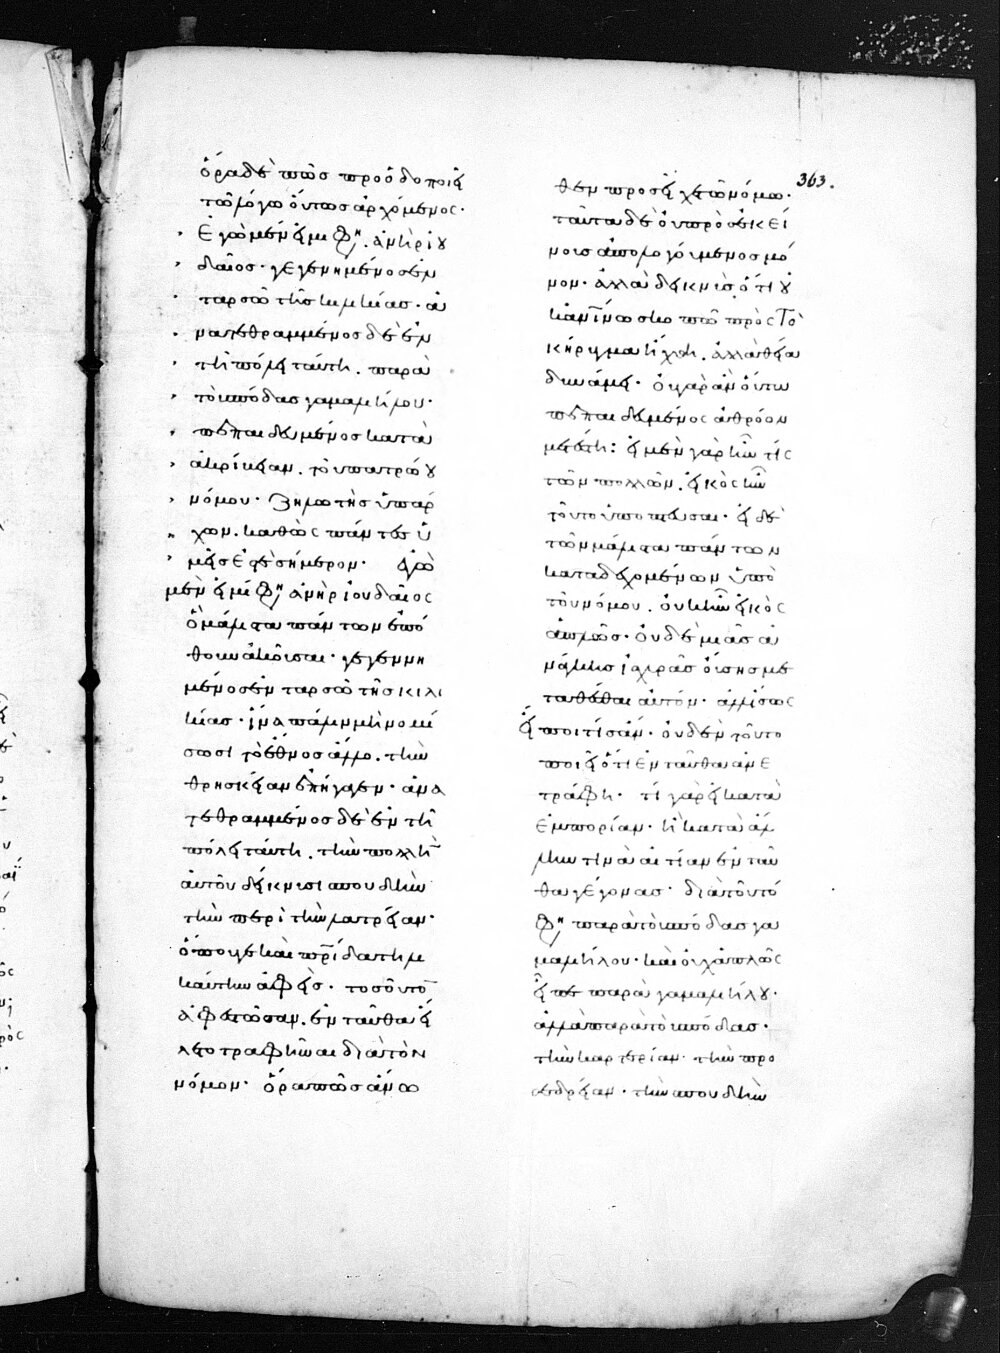 363.
ὅρα δὲ πῶς προοδοποιεῖ
τῶ λόγω οὕτως ἀρχόμενος·
Ἐγὼ μέν εἰμι φη, ἀνὴρ ἰου
δαῖος· γεγεννημένος ἐν
ταρσῶ τῆς κιλικίας· ἀ
νατεθραμμένος δὲ ἐν
τῆ πόλει ταύτη. παρὰ
τοὺς πόδας γαμαλιήλου·
πεπαιδευμένος κατὰ
ἀκρίβειαν. τοῦ πατρώου
νόμου· ζηλωτὴς ὑπάρ
χων. καθὼς πάντες ὑ
μεῖς ἐστε σήμερον· ἐγὼ
μὲν εἰμί φη, ἀνὴρ ἰουδαῖος
ὃ μάλιστα πάντων ἐπό
θουν ἀκοῦσαι· γεγεννη
μένος ἐν ταρσῶ τῆς κιλι
κίας· ἵνα πάλιν μὴ νομί
σωσι τὸ ἔθνος ἄλλο. τὴν
θρησκείαν ἐπήγαγεν· ἀνα
τεθραμμένος δὲ ἐν τῆ
πόλει ταύτη. τὴν πολλὴν
αὐτοῦ δείκνυσι σπουδὴν
τὴν περὶ τὴν λατρείαν·
ὅπου γε καὶ πρίδα τὴν
καύτην ἀφεὶς· τοσοῦτον
ἀφεστῶσαν. ἐνταῦθα εἵ
λετο τραφῆναι διὰ τὸν
νόμον· ὅρα πῶς ἄνω
θεν προσεῖχε τῶ νόμω·
ταῦτα δὲ οὐ πρὸς ἐκεί
νους ἀπολογούμενος μό
νον· ἀλλὰ δεικνὺς ὅτι οὐ
κ ἀνίνω σκοπῶ πρὸς τὸ
κήρυγμα ἤχθη. ἀλλὰ θεία
δυνάμει· οὐ γὰρ ἂν οὕτω
πεπαιδευμένος ἀθρόον
μετέστη: εἰ μὲν γὰρ ἦν τίς
τῶν πολλῶν. εἰκὸς ἦν
τοῦτο ὑποπτεῦσαι· εἰ δὲ
τῶν μάλιστα πάντων
καταδεχομένων ὑπὸ
τοῦ νόμου. οὐκ ἦν εἰκὸς
ἁπλῶς· οὐδὲ μιᾶς ἀ
νάγκης ἰσχυρᾶς οὔσης με
ταθέσθαι αὐτόν· ἀλλ' ἴσως
εἴποι τίς ἄν· οὐδὲν τοῦτο
ποιεῖ ὅτι ἐνταῦθα ἀνε
τράφη· τί γὰρ εἰ κατὰ
ἐμπορίαν· ἢ κατὰ ἄλ
λην τινὰ αἰτίαν ἐνταῦ
θα γέγονας· διὰ τοῦτό
φη, παρὰ τοὺς πόδας γα
μαλιήλου· καὶ οὐχ ἁπλῶς
εἶπε παρὰ γαμαλιήλου·
ἀλλὰ παρὰ τοὺς πόδας·
τὴν καρτερίαν· τὴν προ
σεδρείαν· τὴν σπουδὴν